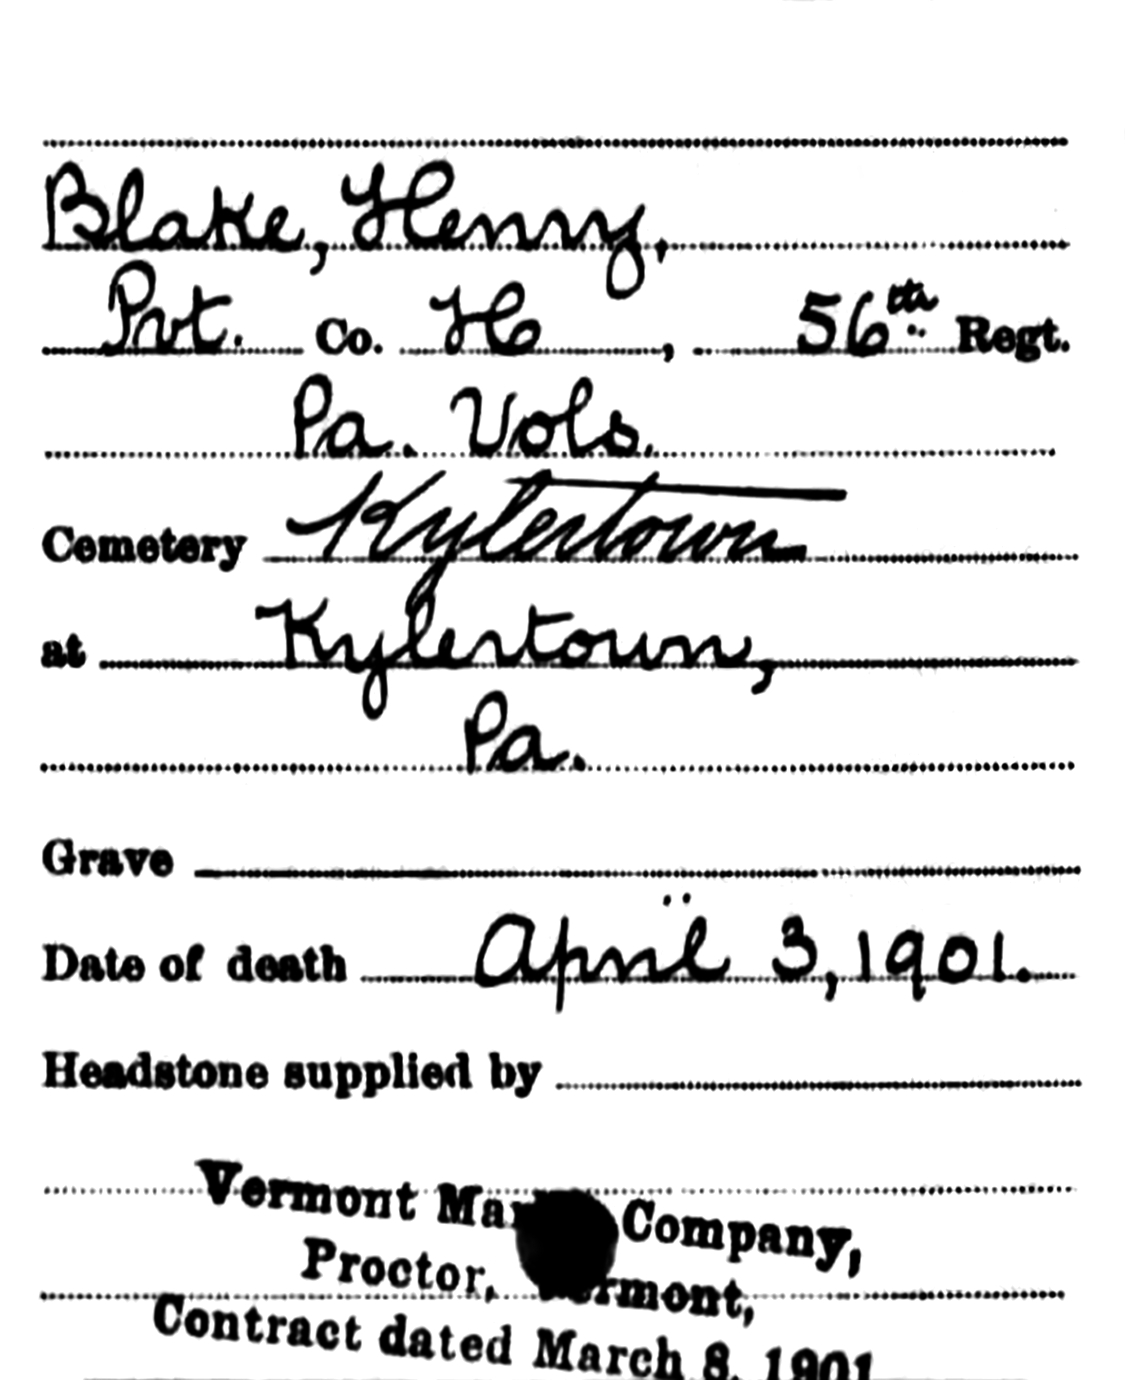 Blake, Henry,
Pvt. Co. H, 56th Regt.
Pa. Vols.
Cemetery Kylertown
at Kylertown,
Pa.
Grave
Date of death April 3, 1901.
Headstone supplied by
Vermont Company,
Proctor,
Contract dated March 8, 1901